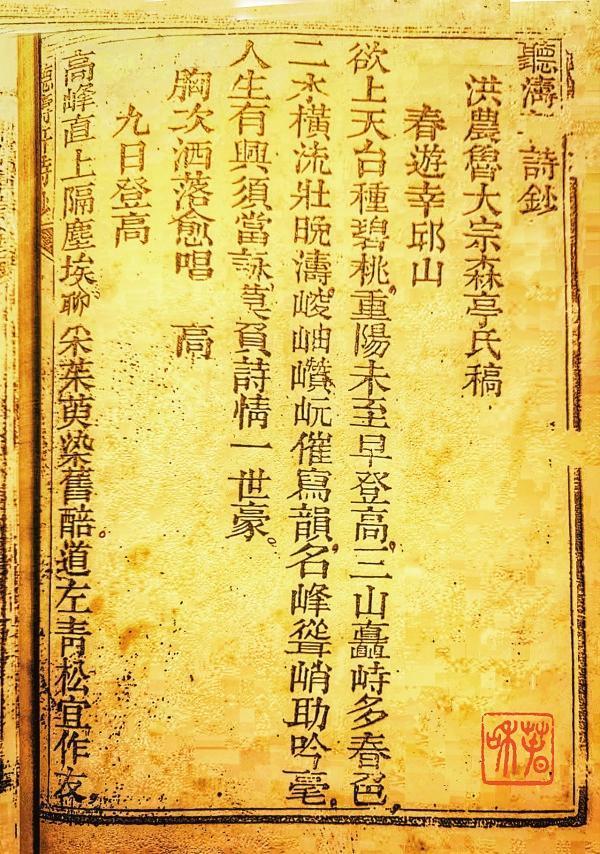 聽濤 詩鈔
洪農魯大宗森亭氏稿
春遊幸邱山
欲上天台種碧桃重陽未至早登高三山矗峙多春色
二水橫流壯晚濤崚岫巑岏催寫韻名峰聳峭助吟毫
人生有興須當詠莫負詩情一世豪
胸次洒落愈唱 高
九日登高
高峰直上隔塵埃聊采茱萸染舊醅道左青松宜作友
聽濤亭詩鈔